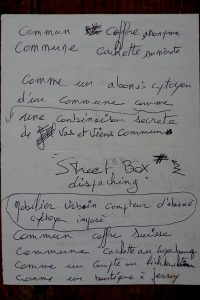 Commun coffre anonyme
Commune cachette
Comme un abonés cytoyen
d'un commune comme
une combinaison secrete
de Vas et Viens Commun
"Street Box
dispaching"
Mobilier Urbain compteur d'aboné
cytoyen imposé
Commun coffre Suisse
Commune cachette au Luxembourg
Comme un compte au
Comme une boutique à Jersey